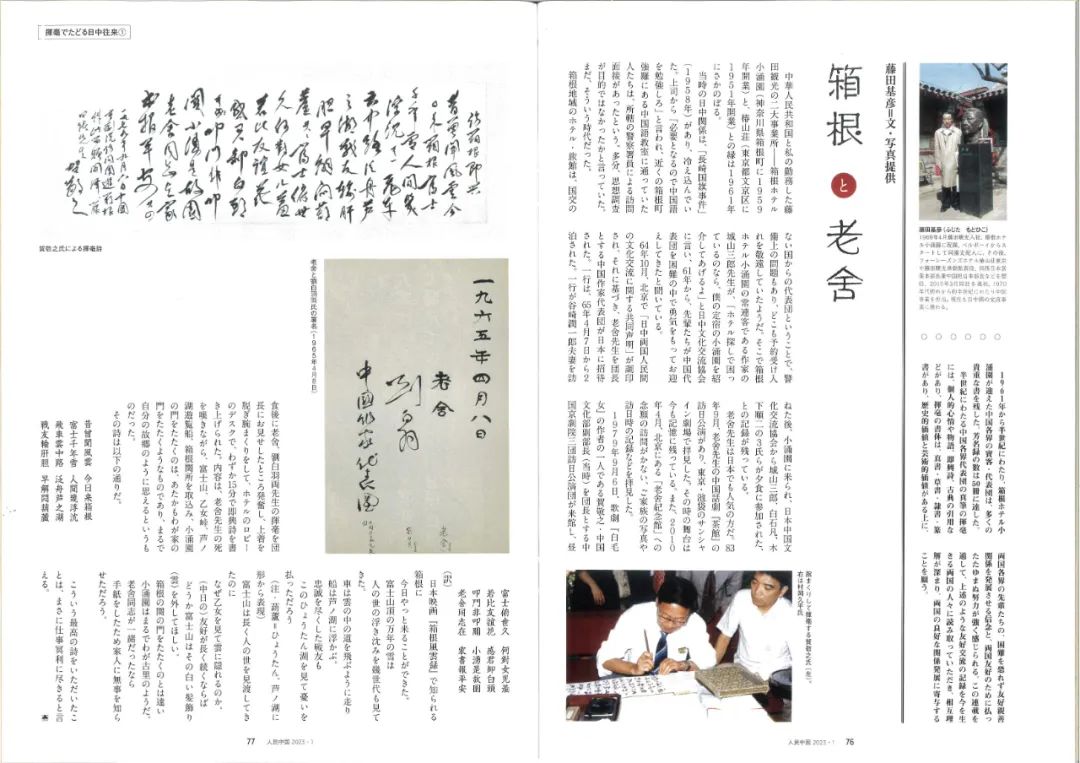 箱根と老舎
藤田基彦＝文・写真提供
藤田基彦（ふじた もとひこ）
1961年から半世紀にわたり、箱根ホテル小
涌園が迎えた中国各界の賓客・代表団は、多くの
貴重な書を残した。芳名録の数は50冊に達した。
半世紀にわたる中国各界代表団の真筆の揮毫
には、個人的心情や物語、即興詩、古典の引用な
どがあり、揮毫の書体は、真書・草書・隷書・篆
書があり、歴史的価値と芸術的価値がある上に、
両国各界の先輩たちの、困難を恐れず友好親善
関係を発展させる信念と、両国友好のために払っ
たたゆまぬ努力が強く感じられる。この連載を
通して、上述のような友好交流の記録を今を生
きる両国の人々に読み取っていただき、相互理
解が深まり、両国の良好な関係発展に寄与する
ことを願う。
中華人民共和国と私の勤務した藤
田観光の二大事業所――箱根ホテル
小涌園（神奈川県箱根町に1959
年開業）と、椿山荘（東京都文京区に
1951年開業）との縁は1961年
にさかのぼる。
当時の日中関係は、「長崎国旗事件」
（1958年）があり、冷え込んでい
た。上司から「必要となるので中国語
を勉強しろ」と言われ、近くの箱根町
強羅にある中国語教室に通っていた
人たちは、所轄の警察署員による訪問
面接があったという。多分、思想調査
が目的ではなかったかと言っていた。
まだ、そういう時代だった。
箱根地域のホテル・旅館は、国交の
ない国からの代表団ということで、警
備上の問題もあり、どこも予約受け入
れを敬遠していたようだ。そこで箱根
ホテル小涌園の常連客である作家の
城山三郎先生が、「ホテル探しで困っ
ているのなら、僕の定宿の小涌園を紹
介してあげるよ」と日中文化交流協会
に言い、61年から、先輩たちが中国代
表団を困難の中で勇気をもってお迎
えしてきたと聞いている。
64年10月、北京で「日中両国人民間
の文化交流に関する共同声明」が調印
され、それに基づき、老舎先生を団長
とする中国作家代表団が日本に招待
された。一行は、65年4月7日から2
泊された。一行が谷崎潤一郎夫妻を訪
ねた後、小涌園に来られ、日本中国文
化交流協会から城山三郎、白石凡、木
下順二の3氏らが夕食に参加された、
との記録が残っている。
老舎先生は日本でも人気の方だ。83
年9月、老舎先生の中国話劇『茶館』の
訪日公演があり、東京・池袋のサンシャ
イン劇場で拝見した。その時の舞台は
今も記憶に残っている。また、2010
年4月、北京にある「老舎紀念館」への
念願の訪問がかない、ご家族の写真や
訪日時の記録などを拝見した。
1979年9月6日、歌劇『白毛
女』の作者の一人である賀敬之・中国
文化部副部長（当時）を団長とする中
国京劇院三団訪日公演団が来館し、昼
腕まくりして揮毫する賀敬之氏（左）。
右は村岡久平氏
人民中国 2023・1 76
揮毫でたどる日中往来①
賀敬之氏による揮毫詩
老舎と劉白羽両氏の署名（1965年4月8日）
一九六五年四月八日
老舍
刘白羽
中國作家代表團
食後に老舎、劉白羽両先生の揮毫を団
長にお見せしたところ発奮し、上着を
脱ぎ腕まくりをして、ホテルのロビー
のデスクで、わずか15分で即興詩を書
き上げられた。内容は、老舎先生の死
を嘆きながら、富士山、乙女峠、芦ノ
湖遊覧船、箱根関所を取込み、小涌園
の門をたたくのは、あたかもわが家の
門をたたくようなものであり、まるで
自分の故郷のように思えるというも
のだった。
その詩は以下の通りだ。
昔曾聞風雲 今日来箱根
富士千年雪 人間幾浮沈
飛車雲中路 泛舟芦之湖
戦友輸肝胆 早解悶葫蘆
富士俯世久 何対女児羞
若比友誼花 感君卸白頭
叩門非叩関 小涌是故園
老舎同志在 家書報平安
（訳）
日本映画『箱根風雲録』で知られる
箱根に
今日やっと来ることができた。
富士山の万年の雪は
人の世の浮き沈みを幾世代も見て
きた。
車は雲の中の道を飛ぶように走り
船は芦ノ湖に浮かぶ。
忠誠を尽くした戦友も
このひょうたん湖を見て憂いを
払っただろう
（注・葫蘆＝ひょうたん。芦ノ湖に
形から表現）
富士山は長く人の世を見渡してき
たのに
なぜ乙女を見て雲に隠れるのか。
（中日の）友好が長く続くならば
どうか富士山はその白い髪飾り
（雲）を外してほしい。
箱根の関の門をたたくのとは違い
小涌園はまるでわが古里のようだ。
老舎同志が一緒だったなら
手紙をしたため家人に無事を知ら
せただろう。
こういう最高の詩をいただいたこ
とは、まさに仕事冥利に尽きると言
える。
77 人民中国 2023・1